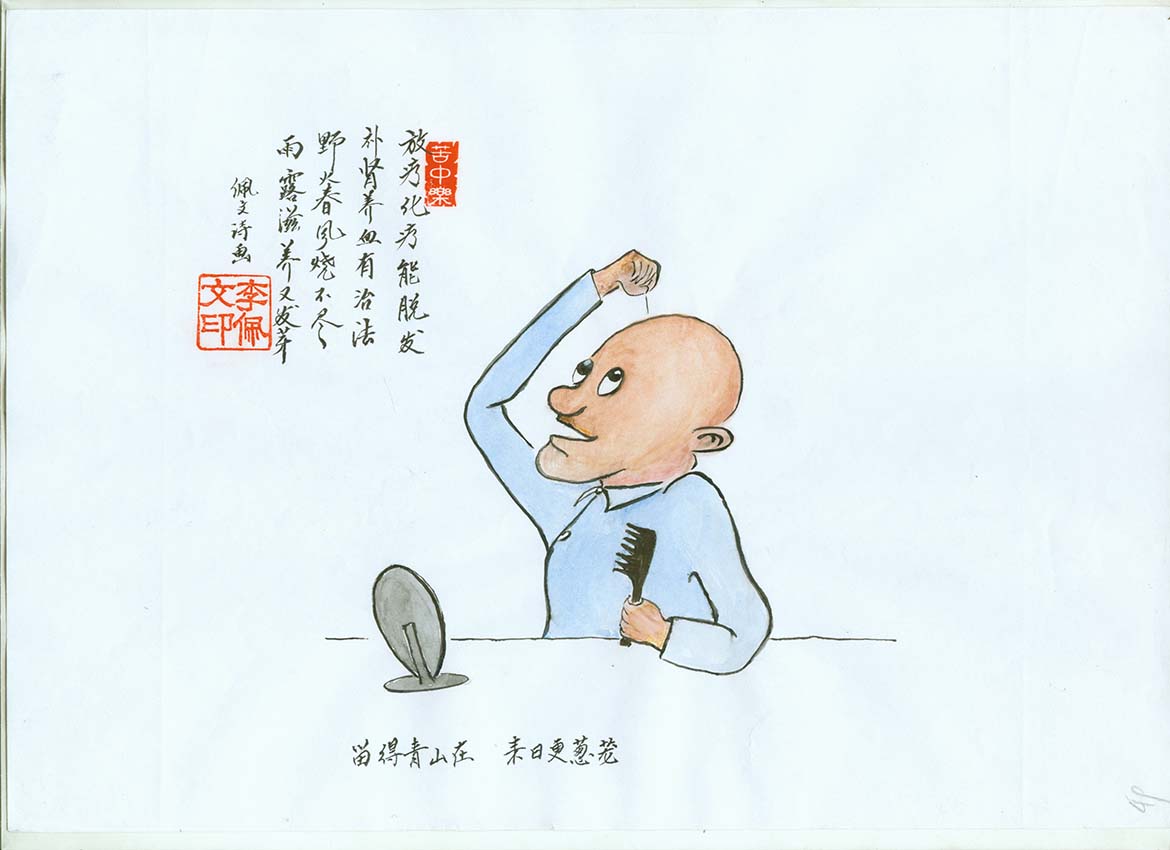 苦中樂
放疗化疗能脱发
补肾养血有治法
野火春风烧不尽
雨露滋养又发芽
佩文诗画
李佩文印
留得青山在 来日更葱茏